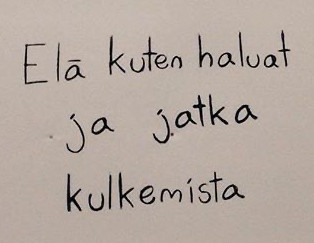 Elā kuten haluat
ja jatka
kulkemista